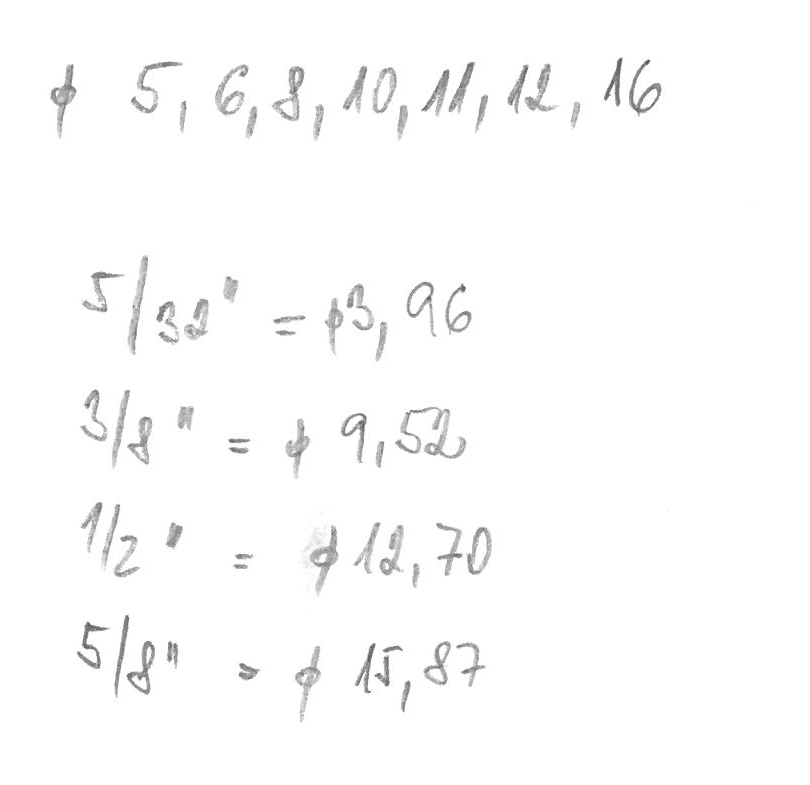 ϕ 5, 6, 8, 10, 11, 12, 16
5/32" = ϕ3,96
3/8" = ϕ 9,52
1/2" = ϕ 12,70
5/8" = ϕ 15,87